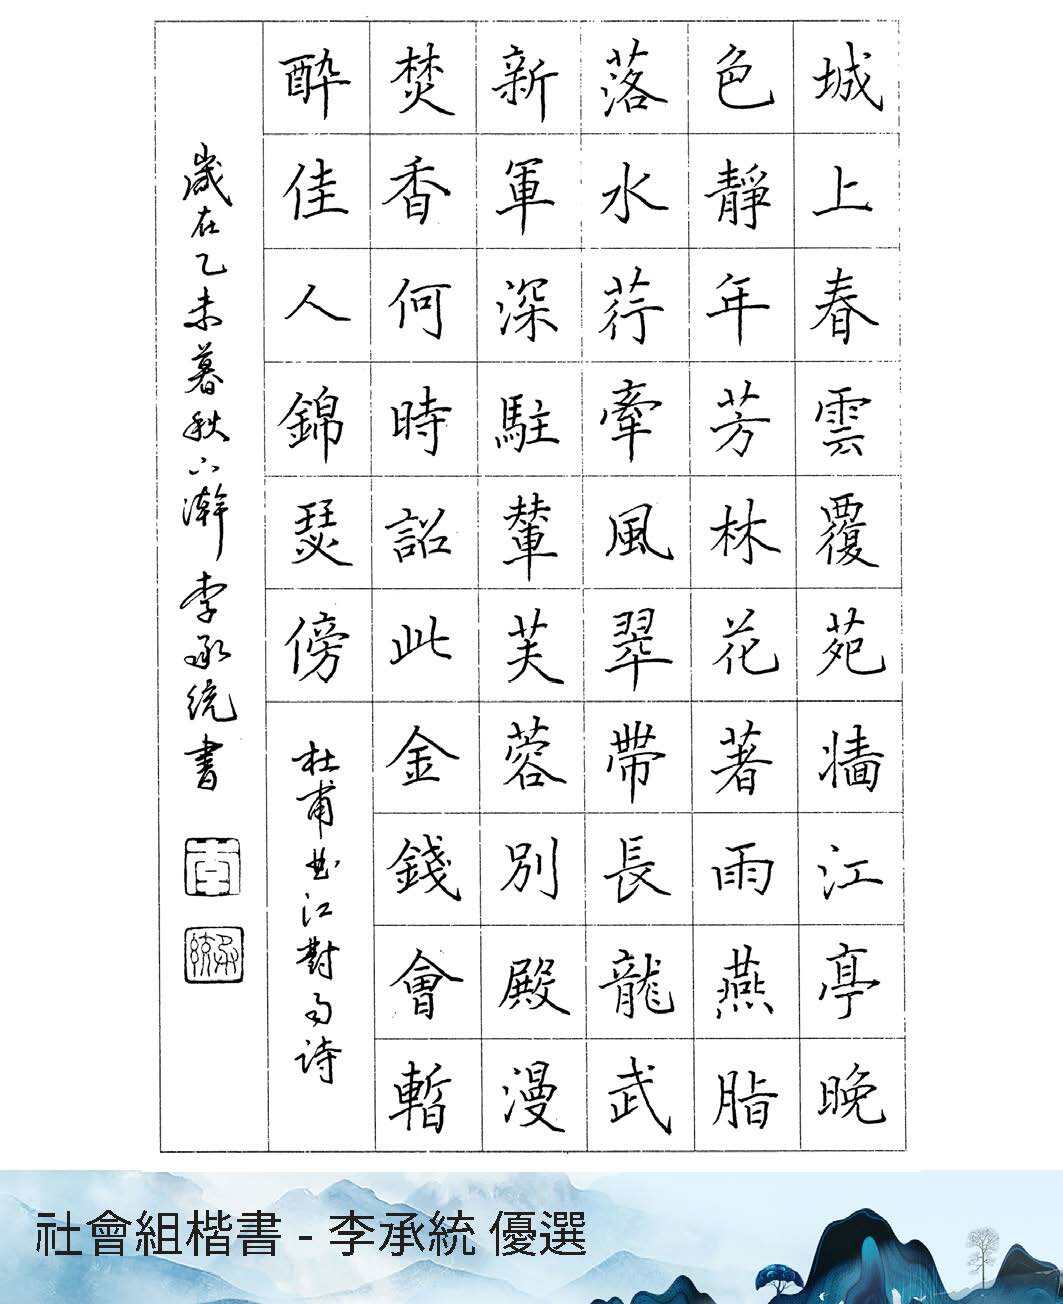 城上春雲覆苑牆江亭晚
色靜年芳林花著雨燕脂
落水荇牽風翠帶長龍武
新軍深駐輦芙蓉別殿漫
焚香何時詔此金錢會暫
醉佳人錦瑟傍
杜甫曲江對雨詩
歲在乙未暮秋下澣李承統書
李
承統
社會組楷書 - 李承統 優選